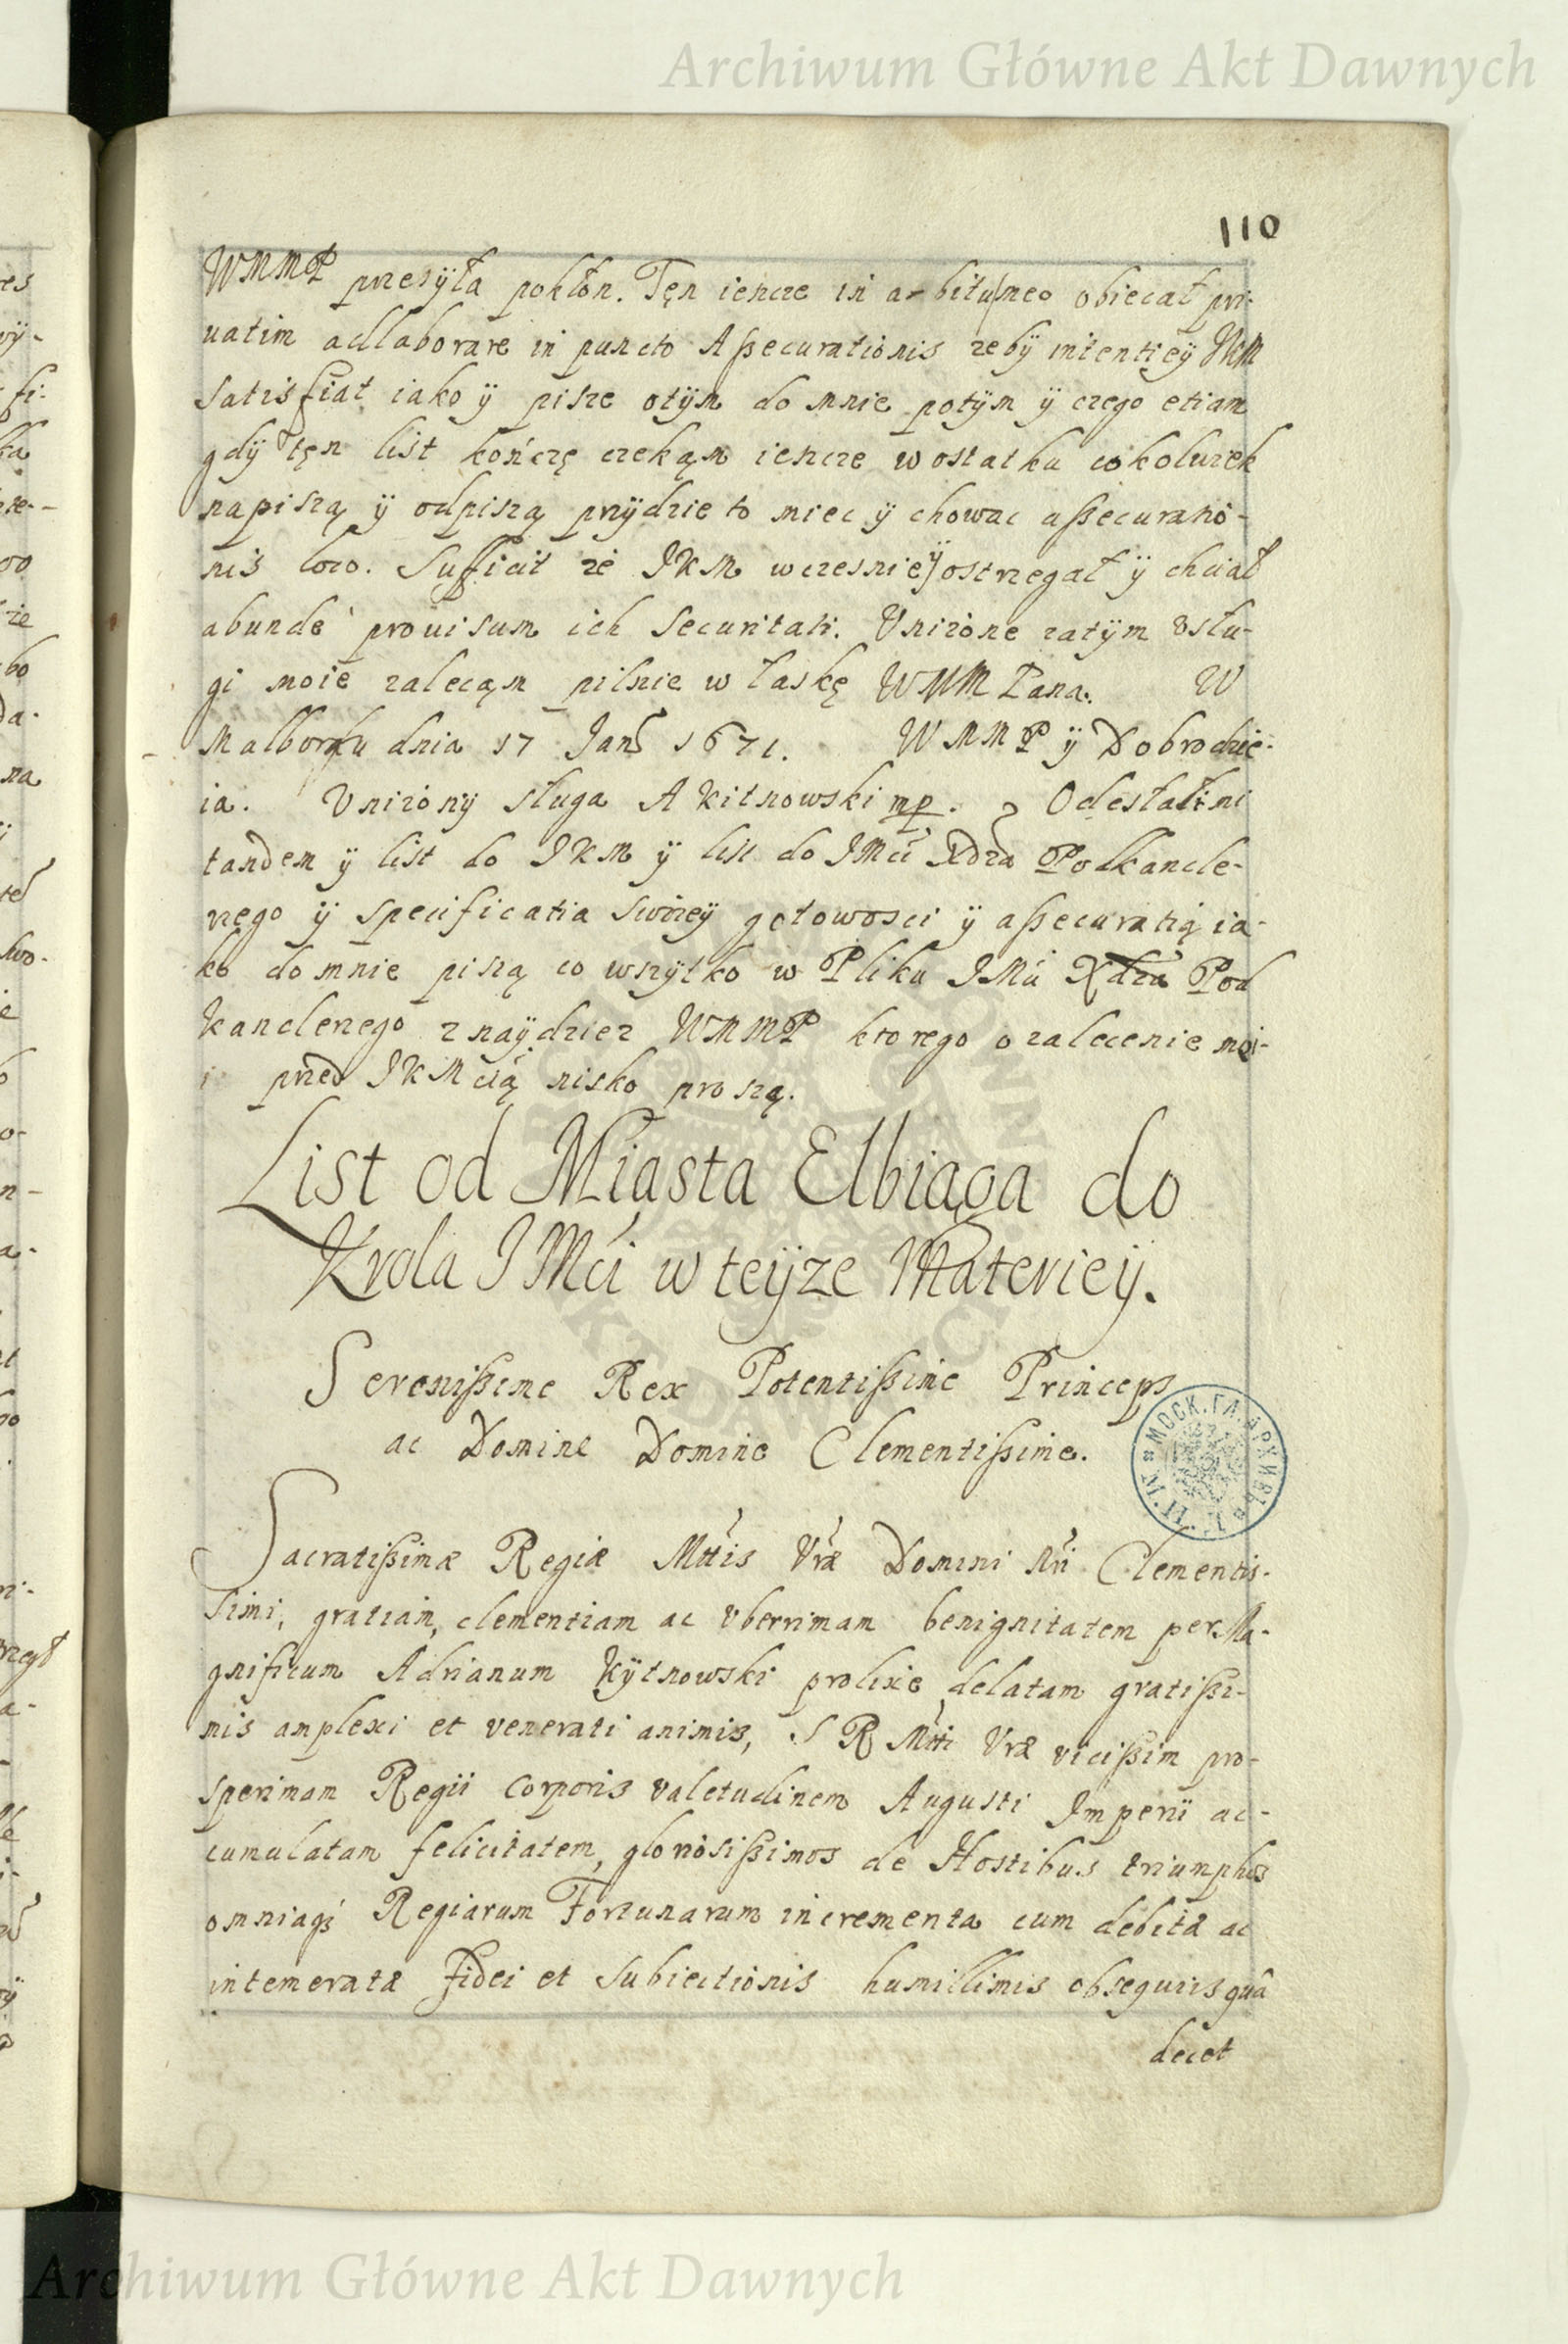 Archiwum Główne Akt Dawnych
110
WMMP przesÿła pokłon. Tęn iescze in arbitu neo obiecał pri-
uatim adlaborare in puncto Aßecurationis zebÿ intentieÿ WM
satisfiat iako ÿ pisze otÿm do mnie potÿm ÿ czego etiam
gdÿ tęn list kończę czekąm iescze w ostatku cokolwiek
napiszą ÿ odpiszą przÿdzie to miec ÿ chowac aßecuratio-
nis loco. Sufficit zé JKM wczesnieÿ ostrzegał ÿ chciał
abundè prouisum ich Securitati. Vnizone zatÿm vsłu-
gi moie zalecąm pilnie w łaskę WMM Pana. W
Malborku dnia 17 Jan 1671. WMMP ÿ Dobrodzie-
ia. Vnizony sługa A Kitnowski mp. Odesłali mi
tandem ÿ list do JKM ÿ list do JMći Xdza Podkancle-
rzego ÿ specificatia swoieÿ gotowosci ÿ aßecuratią ia-
ko do mnie piszą co wszÿtko w Pliku JMći Xdza Pod
kanclerzego znaÿdziesz WMMP ktorego o zalecenie moi-
przed JKMcią nisko proszą.
List od Miąsta Elbiąga do
Krola JMći w teÿze Materieÿ.
Serenißime Rex Potentißime Princeps
ac Domine Domine Clementißime.
МОСК. ГЛ. АРХИВЪ
Sacratißimæ Regiæ Mttis Vræ Domini Nri Clementis-
simi, gratiam, clementiam ac vberrimam benignitatem per Ma-
gnificum Adrianum Kÿtnowski prolixe delatam gratißi-
mis amplexi et venerati animis, S R Mtti Vræ vicißim pro-
sperimam Regii Corporis valetudinem Augusti Imperii ac-
cumulatam felicitatem, gloriosißimos de Hostibus triumphos
omniaq Regiarum Fortunarum incrementa cum debitæ ac
intemeratæ Fidei et Subiectionis humillimis obsequiis quâ
decet
Archiwum Główne Akt Dawnych